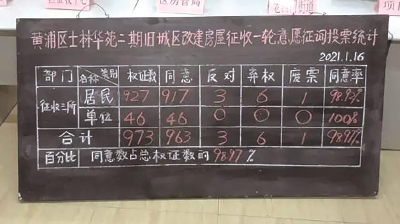 黄浦区士林华苑二期旧城区改建房屋征收一轮意愿征询投票统计
2021.1.16
部门 名称 类别 权证数 同意 反对 弃权 废票 同意率
征收三所 居民 927 917 3 6 1 98.92%
单位 46 46 0 0 0 100%
合计 973 963 3 6 1 98.97%
百分比 同意数占总权证数的98.97%